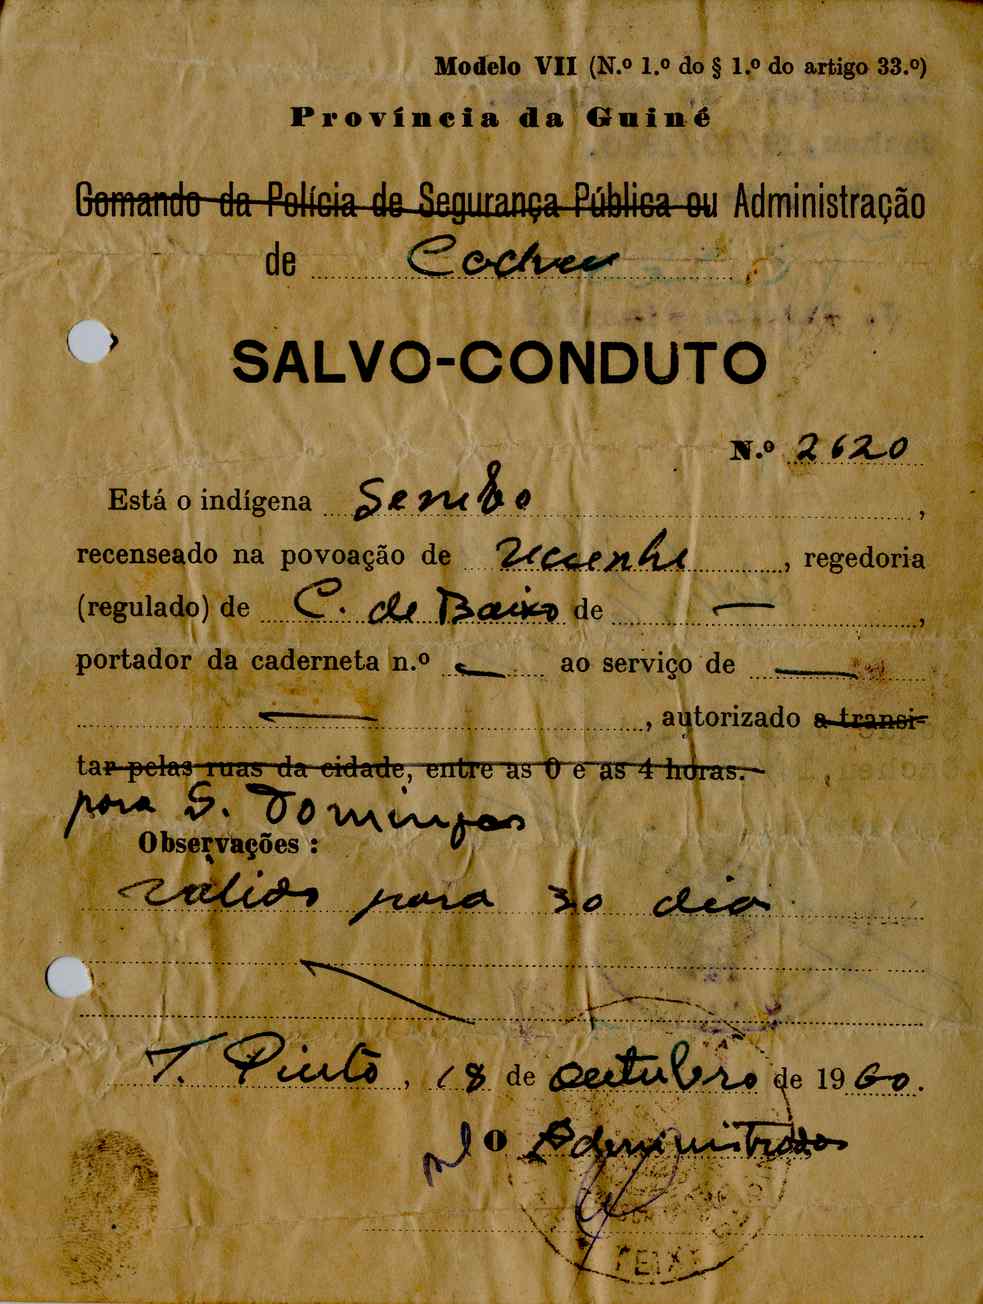 Modelo VII (N.º 1.º do § 1.º do artigo 33.º)
Província da Guiné
Comando da Polícia de Segurança Pública ou Administração
de Cacheu
SALVO-CONDUTO
N.º 2620
Está o indígena Sembo,
recenseado na povoação de, regedoria
(regulado) de C. de Baixo de —,
portador da caderneta n.º — ao serviço de —
—, autorizado a transi-
tar pelas ruas da cidade, entre as 0 e as 4 horas.
para S. Domingos
Observações :
válido para 30 dias
T. Pinto, 18 de outubro de 1960.
pl O Administrador
TEIX